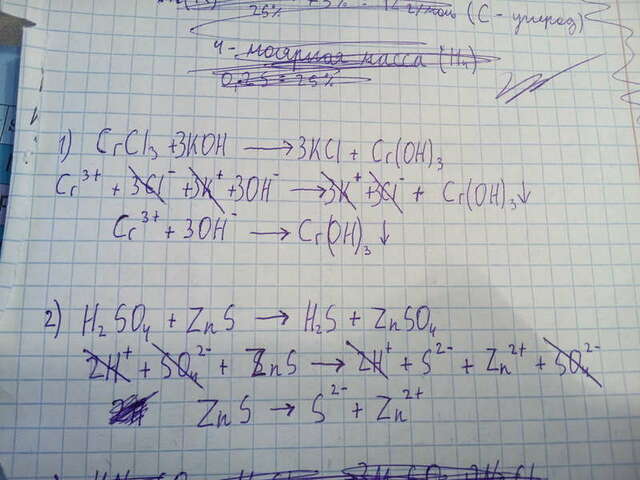 25% (C - углерод)
4 - молярная масса (H₄)
0,25 = 25%
1) CrCl₃ + 3KOH ⟶ 3KCl + Cr(OH)₃
Cr³⁺ + 3Cl⁻ + 3K⁺ + 3OH⁻ ⟶ 3K⁺ + 3Cl⁻ + Cr(OH)₃↓
Cr³⁺ + 3OH⁻ ⟶ Cr(OH)₃↓
2) H₂SO₄ + ZnS ⟶ H₂S + ZnSO₄
2H⁺ + SO₄²⁻ + ZnS ⟶ 2H⁺ + S²⁻ + Zn²⁺ + SO₄²⁻
ZnS ⟶ S²⁻ + Zn²⁺